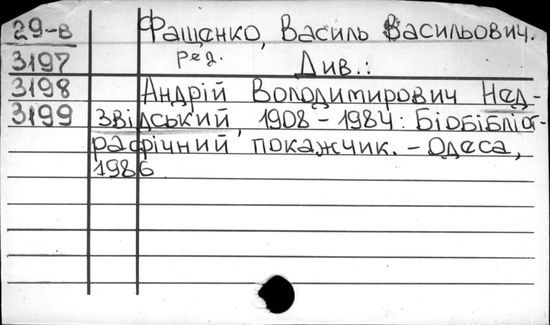 29-в Фащенко, Василь Васильович.
3197 ред. Див.:
3198 Андрій Володимирович Нед-
3199 звідський, 1908-1984: Біобібліог-
рафічний покажчик. - Одеса,
1986